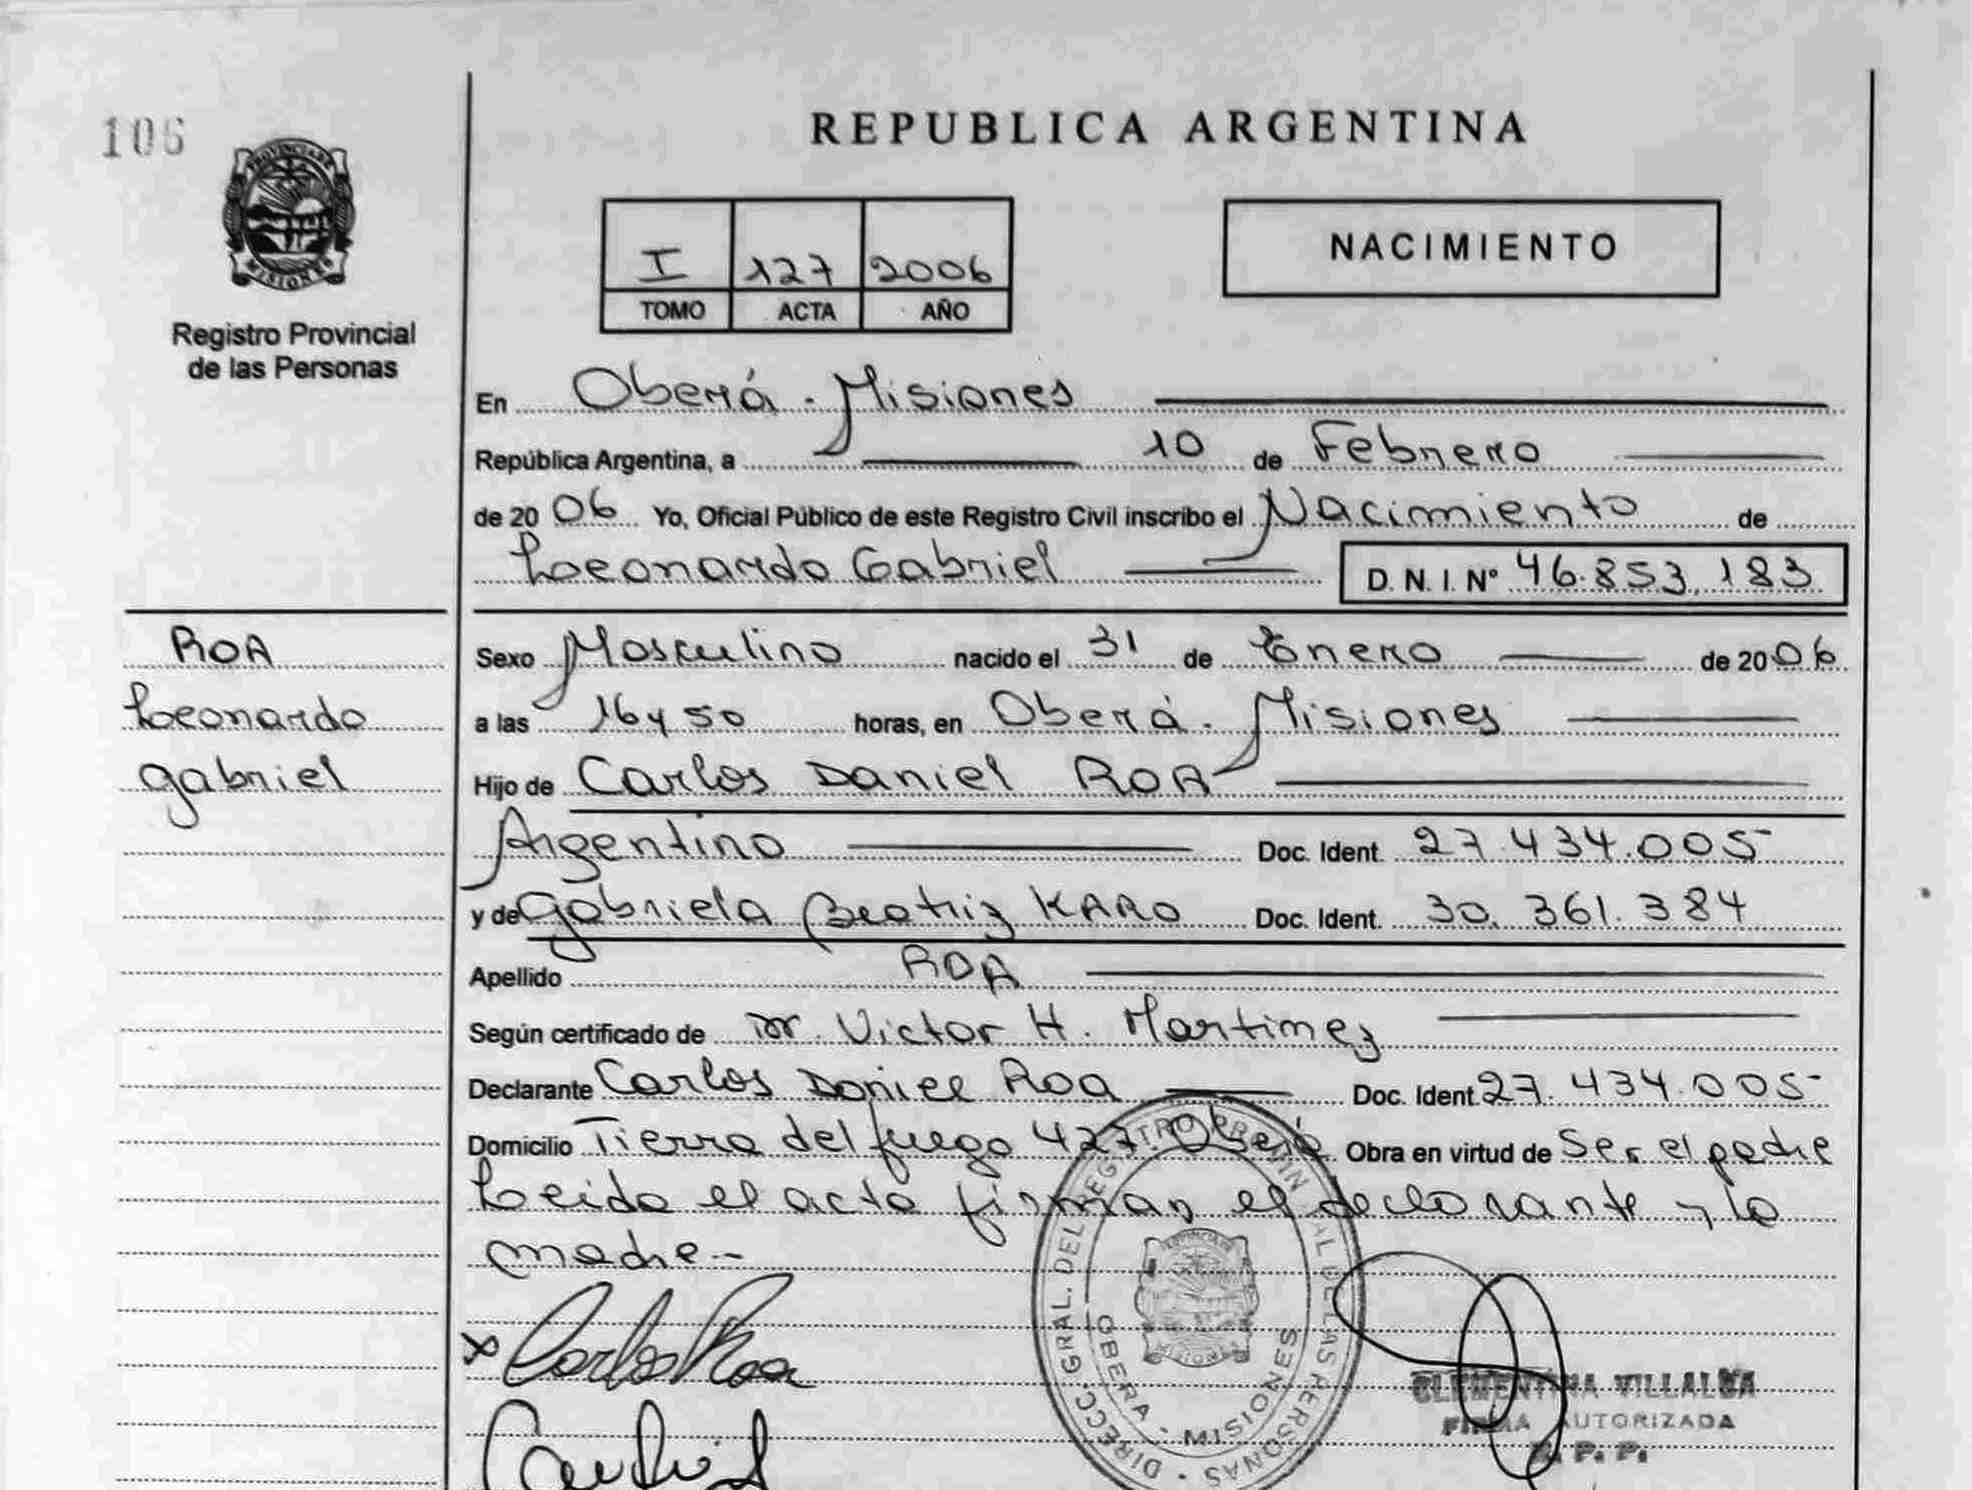 106
PROVINCIA DE
MISIONES
Registro Provincial
de las Personas
REPUBLICA ARGENTINA
I 127 2006
TOMO ACTA AÑO
NACIMIENTO
En Oberá - Misiones
República Argentina, a 10 de Febrero
de 2006 Yo, Oficial Público de este Registro Civil inscribo el Nacimiento de
Leonardo Gabriel D. N. I. Nº 46.853.183
ROA
Leonardo
gabriel
Sexo Masculino nacido el 31 de Enero de 2006
a las 16 y 50 horas, en Oberá - Misiones
Hijo de Carlos Daniel ROA
Argentino Doc. Ident. 27.434.005
y de Gabriela Beatriz KARO Doc. Ident. 30.361.384
Apellido ROA
Según certificado de Dr. Victor H. Martinez
Declarante Carlos Daniel Roa Doc. Ident. 27.434.005
Domicilio Tierra del fuego 427. Oberá Obra en virtud de Ser el padre
Leido el acta firman el declarante y la
madre.-
Carlos Roa
DIRECC. GRAL. DEL REGISTRO PROVINCIAL DE LAS PERSONAS
OBERA - MISIONES
CLEMENTINA VILLALBA
FIRMA AUTORIZADA
R. P. P.